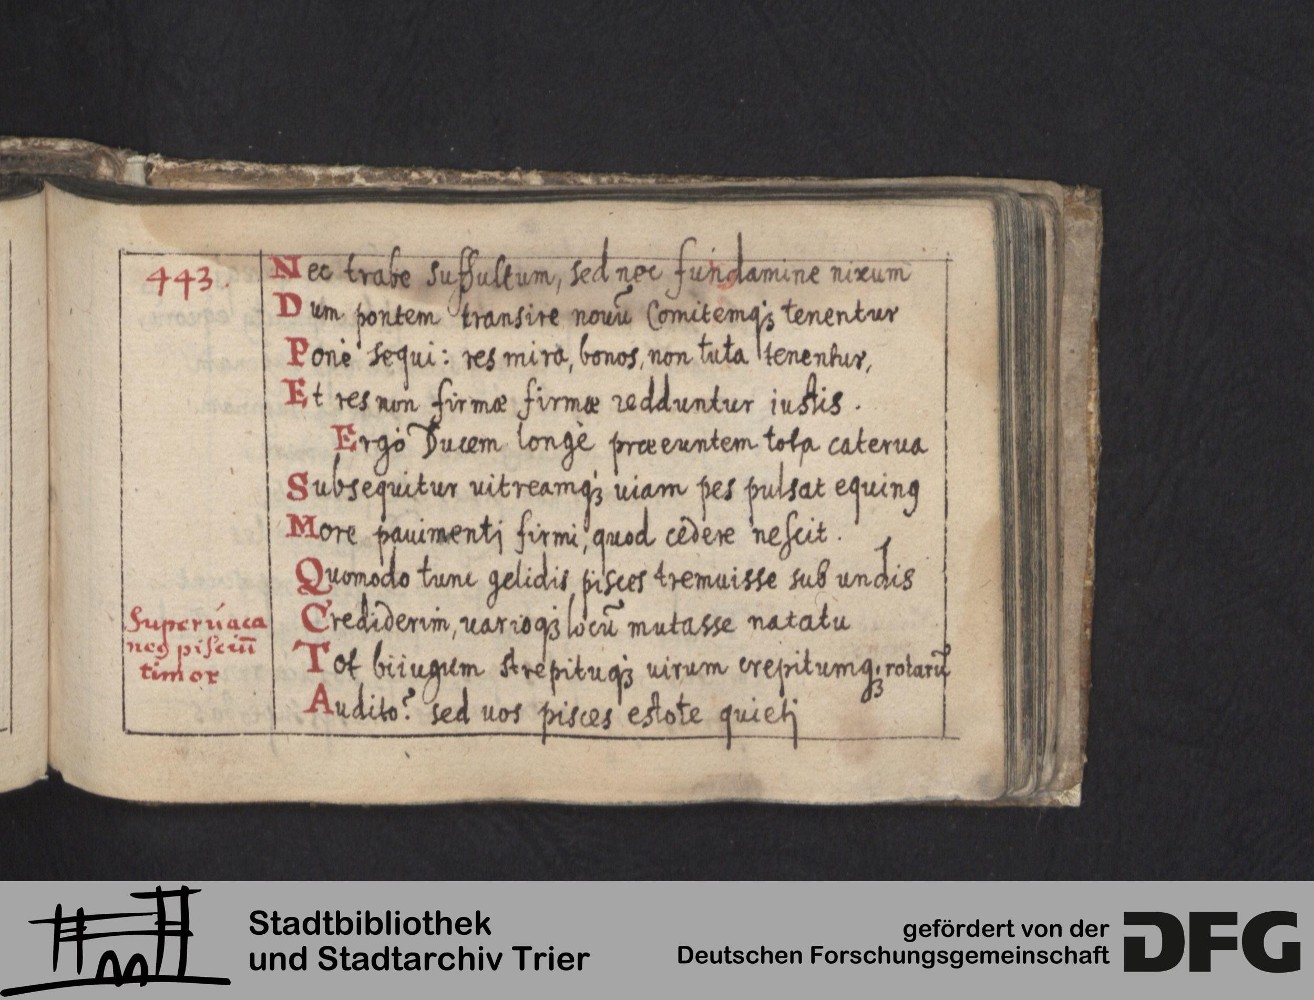 443.
Nec trabe suffultum, sed nec fundamine nixum
Dum pontem transire nouũ Comitemq́ꝫ tenentur
Ponè sequi: res mira, bonos, non tuta tenentur,
Et res non firmæ firmæ redduntur iustis.
Ergò Ducem longè præeuntem tota caterua
Subsequitur uitreamq́ꝫ uiam pes pulsat equinꝰ
More pauimentj firmi, quod cedere nescit.
Quomodo tunc gelidis pisces tremuisse sub undis
Crediderim, uarioq́ꝫ locũ mutasse natatu
Superuacaneꝰ pisciũ timor
Tot biiugum strepituq́ꝫ uirum crepitumqꝫ rotarũ
Audito? sed uos pisces estote quietj
Stadtbibliothek
und Stadtarchiv Trier
gefördert von der
Deutschen Forschungsgemeinschaft
DFG